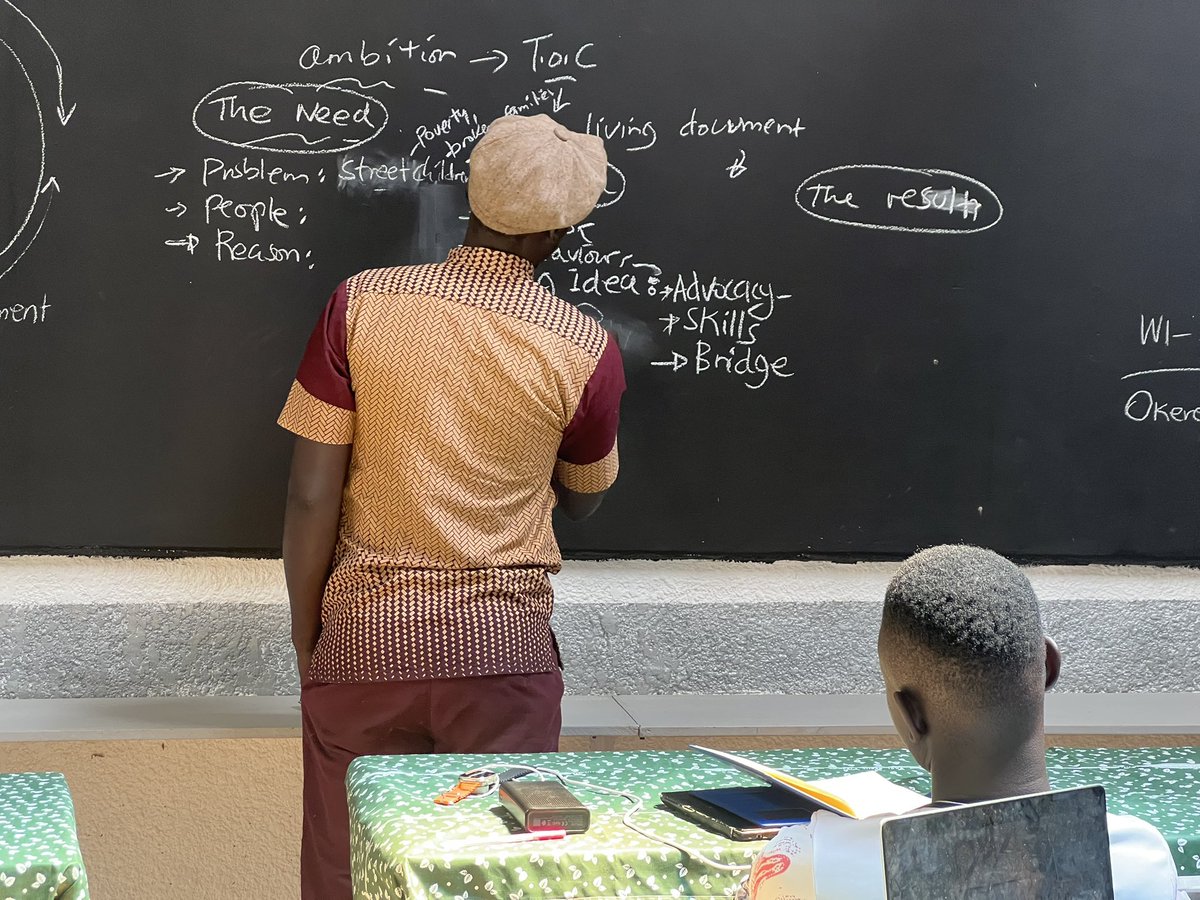 ambition → T.o.C
The Need
Poverty
families
living document
→ Problem: Street childre
→ People:
→ Reason:
The result
aviours
Idea: → Advocacy
→ Skills
→ Bridge
ment
WI-
Okere